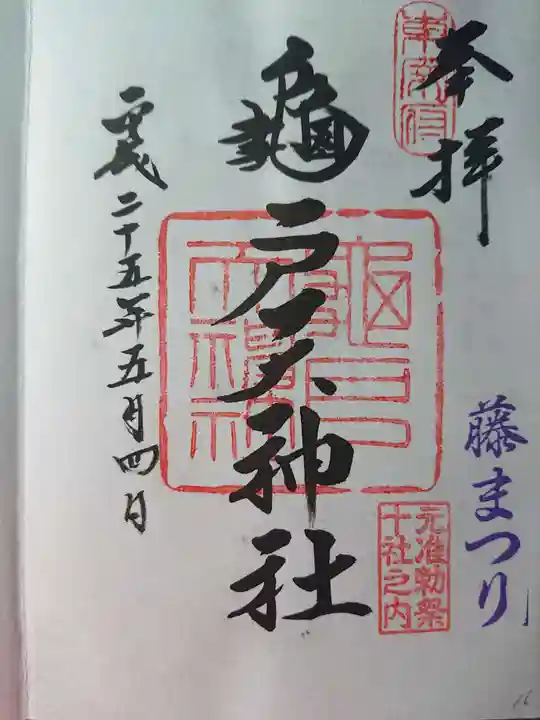 奉拝
東宰府
藤まつり
元准勅祭
十社之内
龜戸天神社
平成二十五年五月四日
16